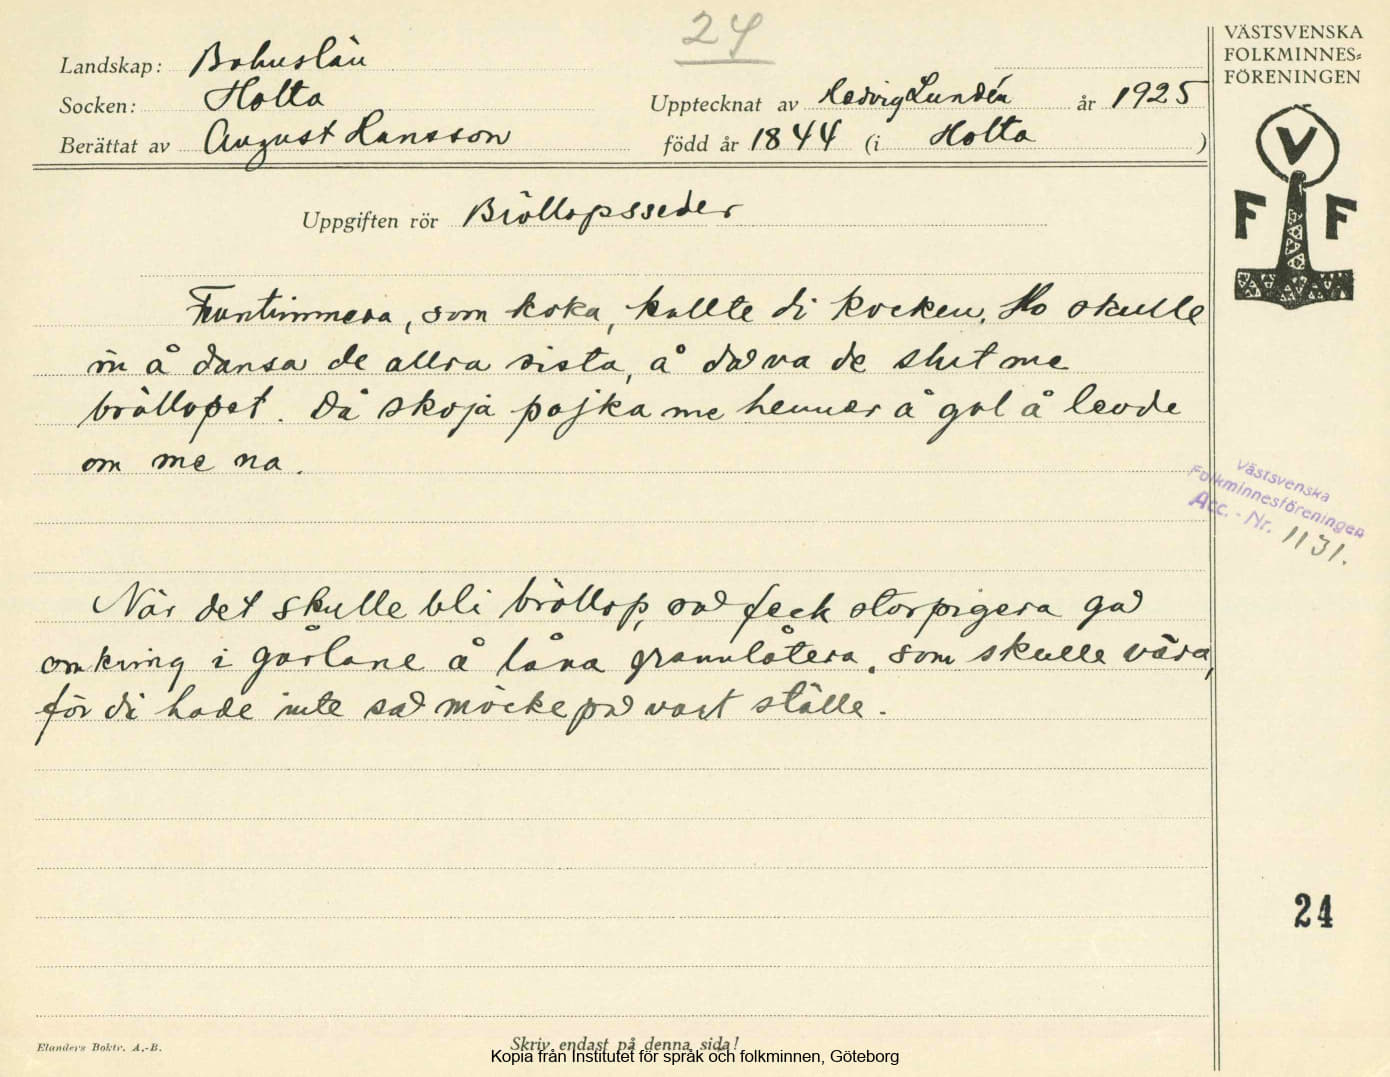 24
VÄSTSVENSKA
FOLKMINNES=
FÖRENINGEN
Landskap: Bohuslän
Socken: Holta
Upptecknat av Hedvig Lundén år 1925
Berättat av August Hansson född år 1844 (i Holta )
V
F F
Uppgiften rör Bröllopsseder
Fruntimmera, som koka, kallte di kocken. Ho skulle
in å dansa de allra sista, å då va de slut me
bröllopet. Då skoja pojka me henner å gol å levde
om me na.
Västsvenska
Folkminnesföreningen
Acc. - Nr. 1131.
När det skulle bli bröllop, så feck storpigera gå
omkring i gårlane å låna grannlåtera, som skulle våra,
för di hade inte så möcke på vart ställe.
24
Elanders Boktr. A.-B.
Skriv endast på denna sida!
Kopia från Institutet för språk och folkminnen, Göteborg